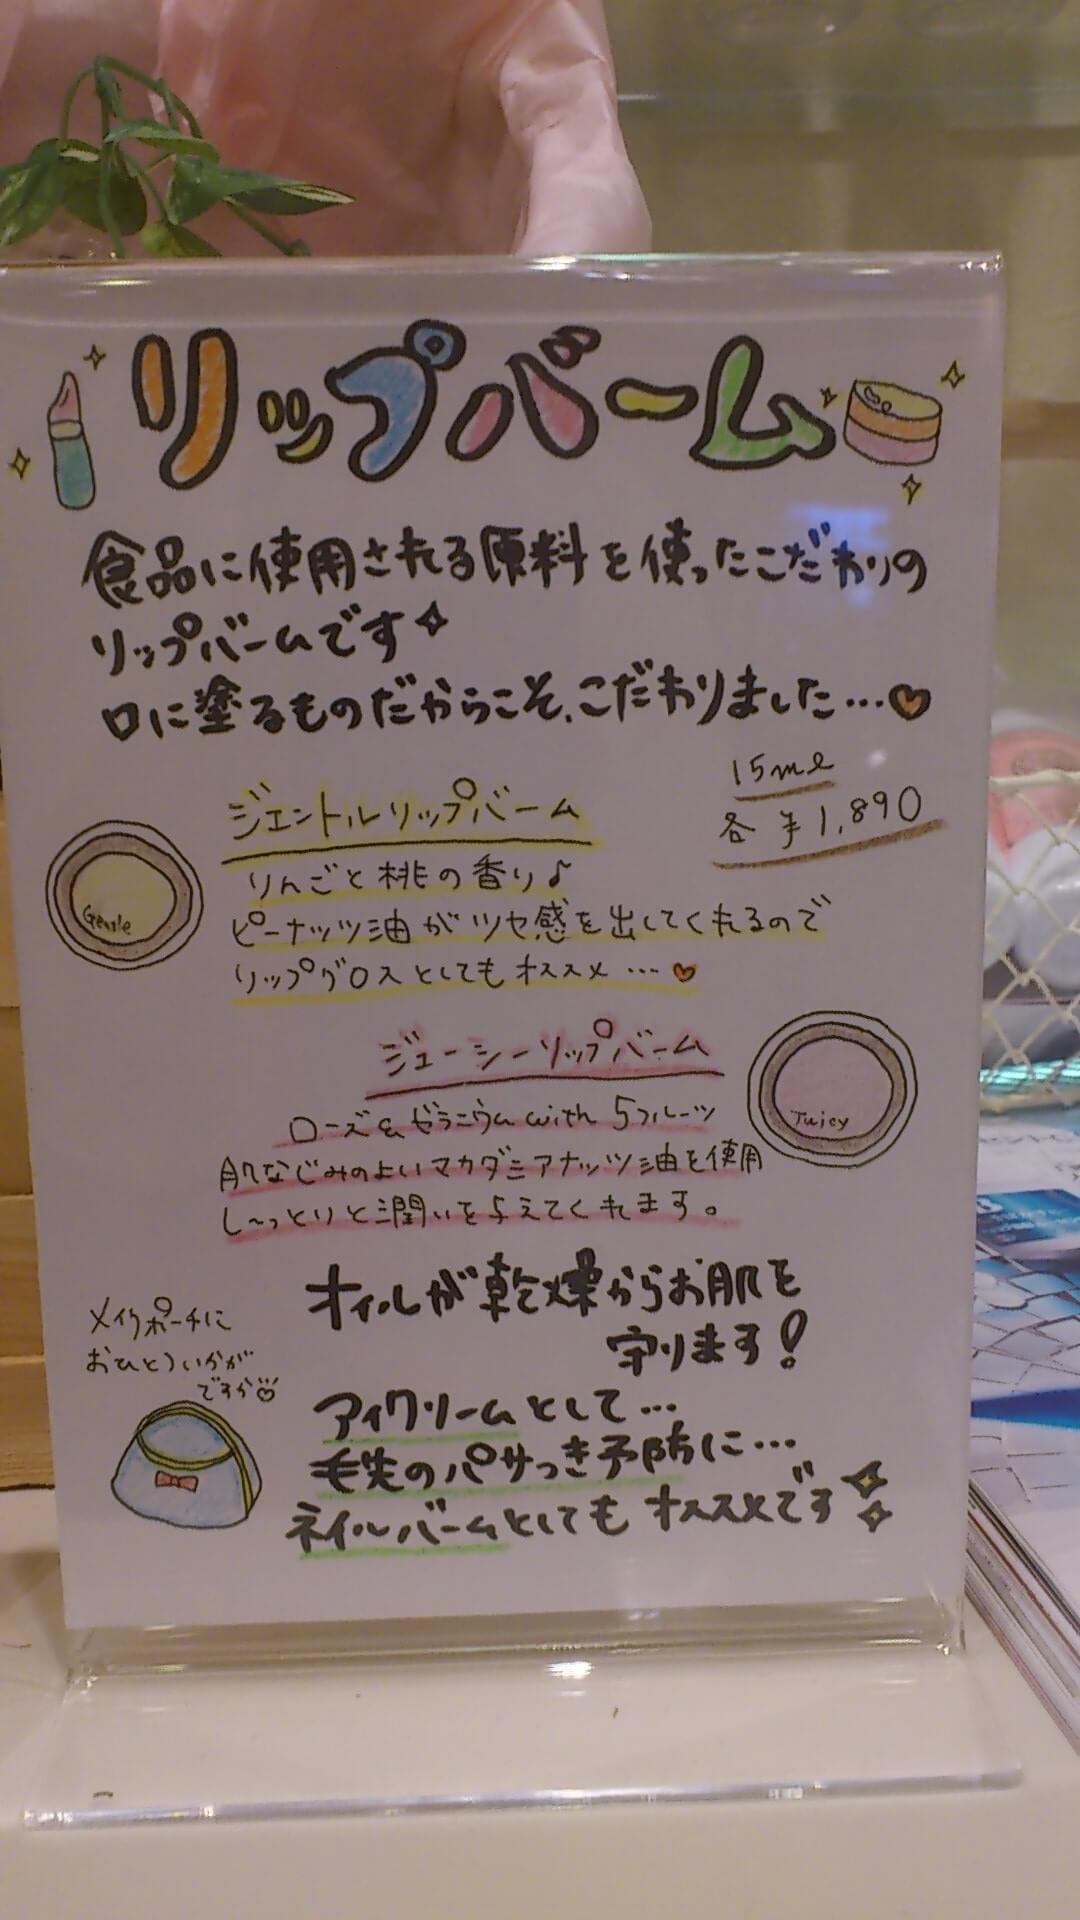 リップバーム
食品に使用される原料を使ったこだわりの
リップバームです
口に塗るものだからこそ、こだわりました…
15ml
各 ¥1,890
ジェントルリップバーム
りんごと桃の香り♪
ピーナッツ油がツヤ感を出してくれるので
リップグロスとしてもオススメ…
Gentle
ジューシーリップバーム
ローズ&ゼラニウム with 5フルーツ
肌なじみのよいマカダミアナッツ油を使用
し〜っとりと潤いを与えてくれます。
Juicy
オイルが乾燥からお肌を
守ります!
メイクポーチに
おひとついかが
ですか
アイクリームとして…
毛先のパサつき予防に…
ネイルバームとしても オススメです